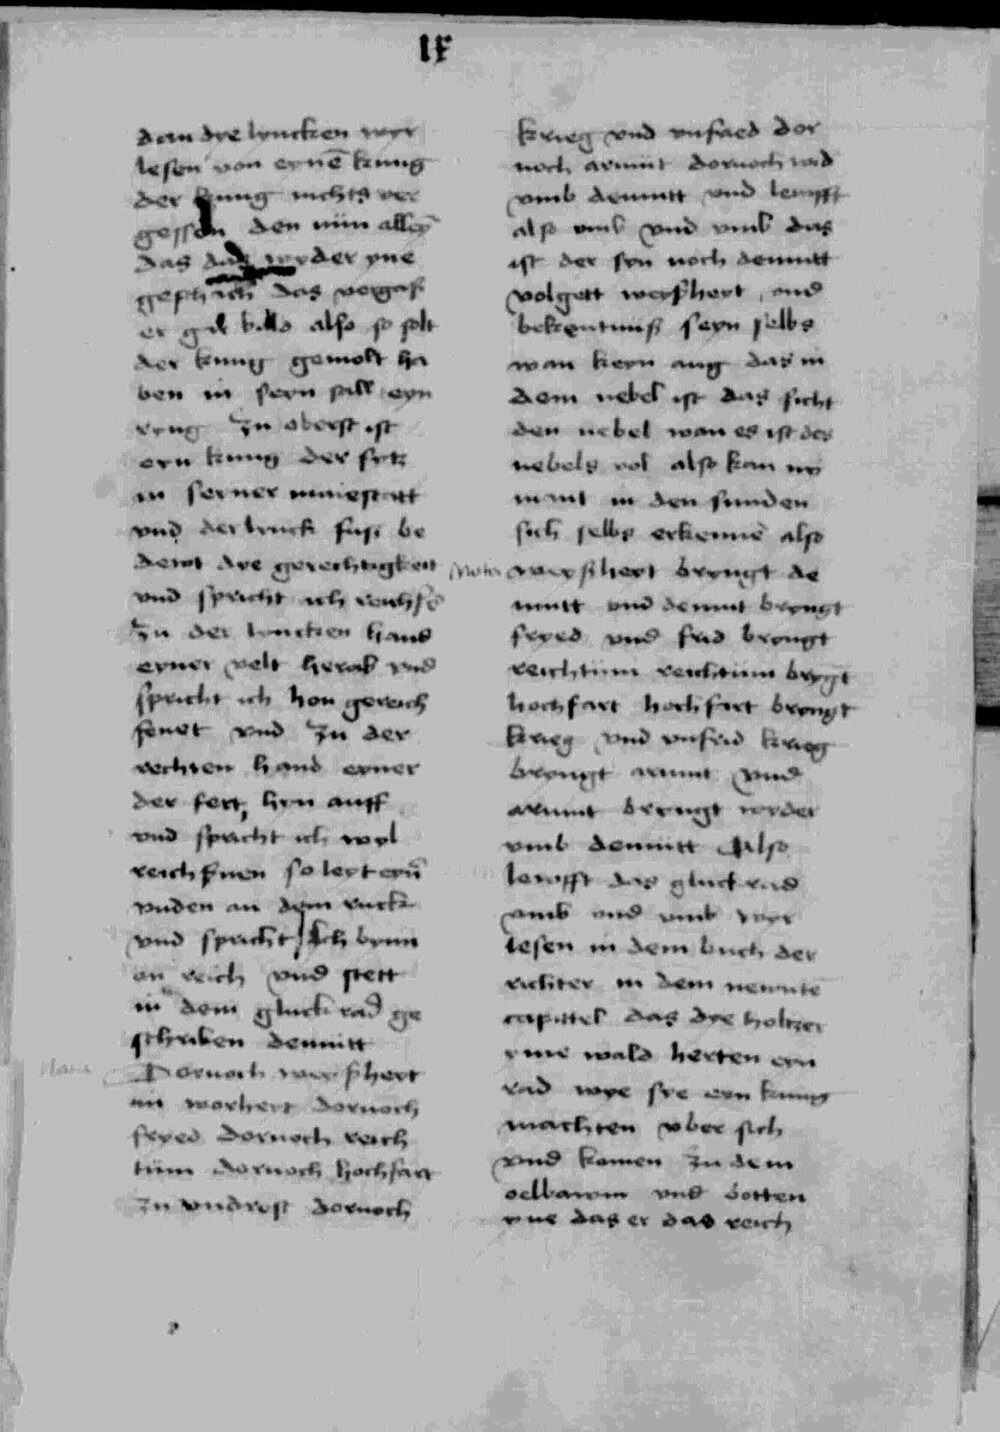 IX
dan dye lyncken wyr
lesen von eynē kunig
der kunig nichts ver
gessen den nün alleȳ
das das wyder yne
geschach das vergaß
er gar baldt also so solt
der kunig gemolt ha
ben in seyn sall eyn
ryng Zu oberst ist
eyn kunig der sytz
in seyner maiestatt
vnd der truck fusz be
dewt dye gerechtigkeit
vnd spricht ich reichsē
Zu der lyncken hand
eyner velt herab vnd
spricht ich hon gereich
senet vnd Zu der
rechten hand eyner
der fert hyn auff
vnd spricht ich wyl
reichsnen so leyt eyn̄
vnden an dem ruck
vnd spricht Ich bynn
on reich vnd stett
in dem gluck rad ge
schriben demutt
Nota Dornoch weyßheyt
in worheyt dornoch
fryed dornoch reich
tum dornoch hochfart
Zu vndrest dornoch
krieg vnd vnfried dor
noch armut dornoch wid
vmb demutt vnd lewfft
also vmb vnd vmb das
ist der syn noch demutt
volgett weyßheyt vnd
bekentniß seyn selbs
wan keyn aug das in
dem nebel ist das sicht
den nebel wan es ist des
nebels vol also kan ny
mant in den sunden
sich selbs erkennē also
Nota weyßheyt bryngt de
mutt vnd demut bryngt
fryed vnd frid bryngt
reichtum reichtum brygt
hochfart hochfart bryngt
krieg vnd vnfrid krieg
bryngt armut vnd
armut bryngt wyder
vmb demutt Also
lewfft das gluck rad
vmb vnd vmb wyr
lesen in dem buch der
richter in dem neunte
capittel das dye holtzer
yme wald herten eyn
rad wye sye eyn kunig
machten vber sich
vnd komen Zu dem
oelbawm vnd botten
yne das er das reich